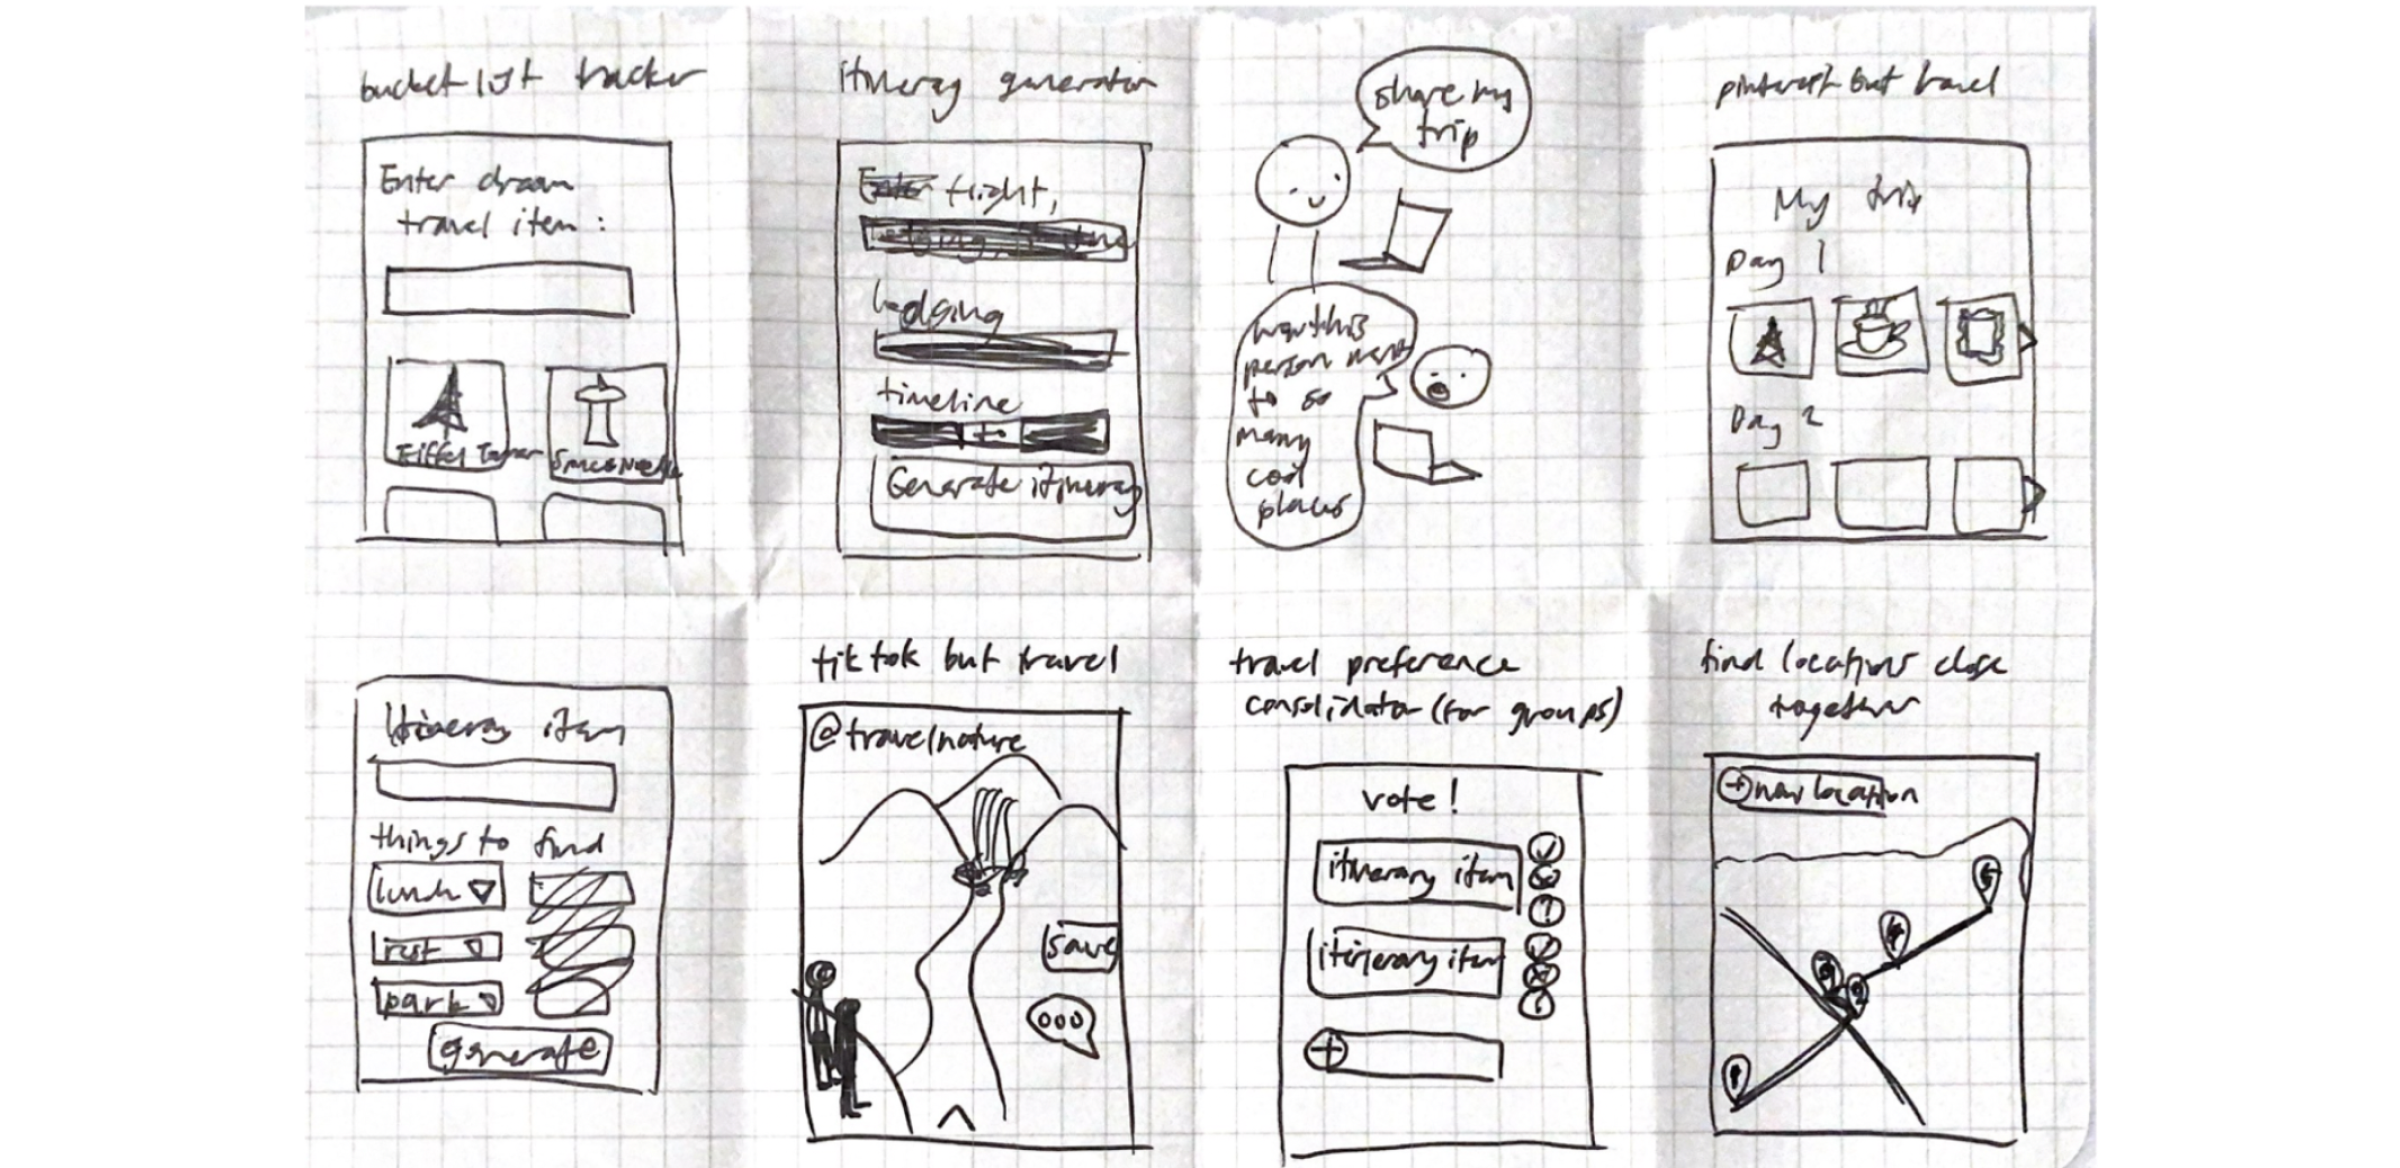 bucket list tracker
Enter dream
travel item :
Eiffel Tower
Space Needle
itineray generator
Enter flight,
lodging
timeline
Generate itineray
share my
trip
this
person
to so
many
cool
places
pinterest but travel
My trip
Day 1
Day 2
Itineray item
things to find
lunch
rest
park
generate
tiktok but travel
@travelnature
save
travel preference
consolidator (for groups)
vote!
itinerary item
itinerary item
find locations close
together
new location
1
2
3
4
5